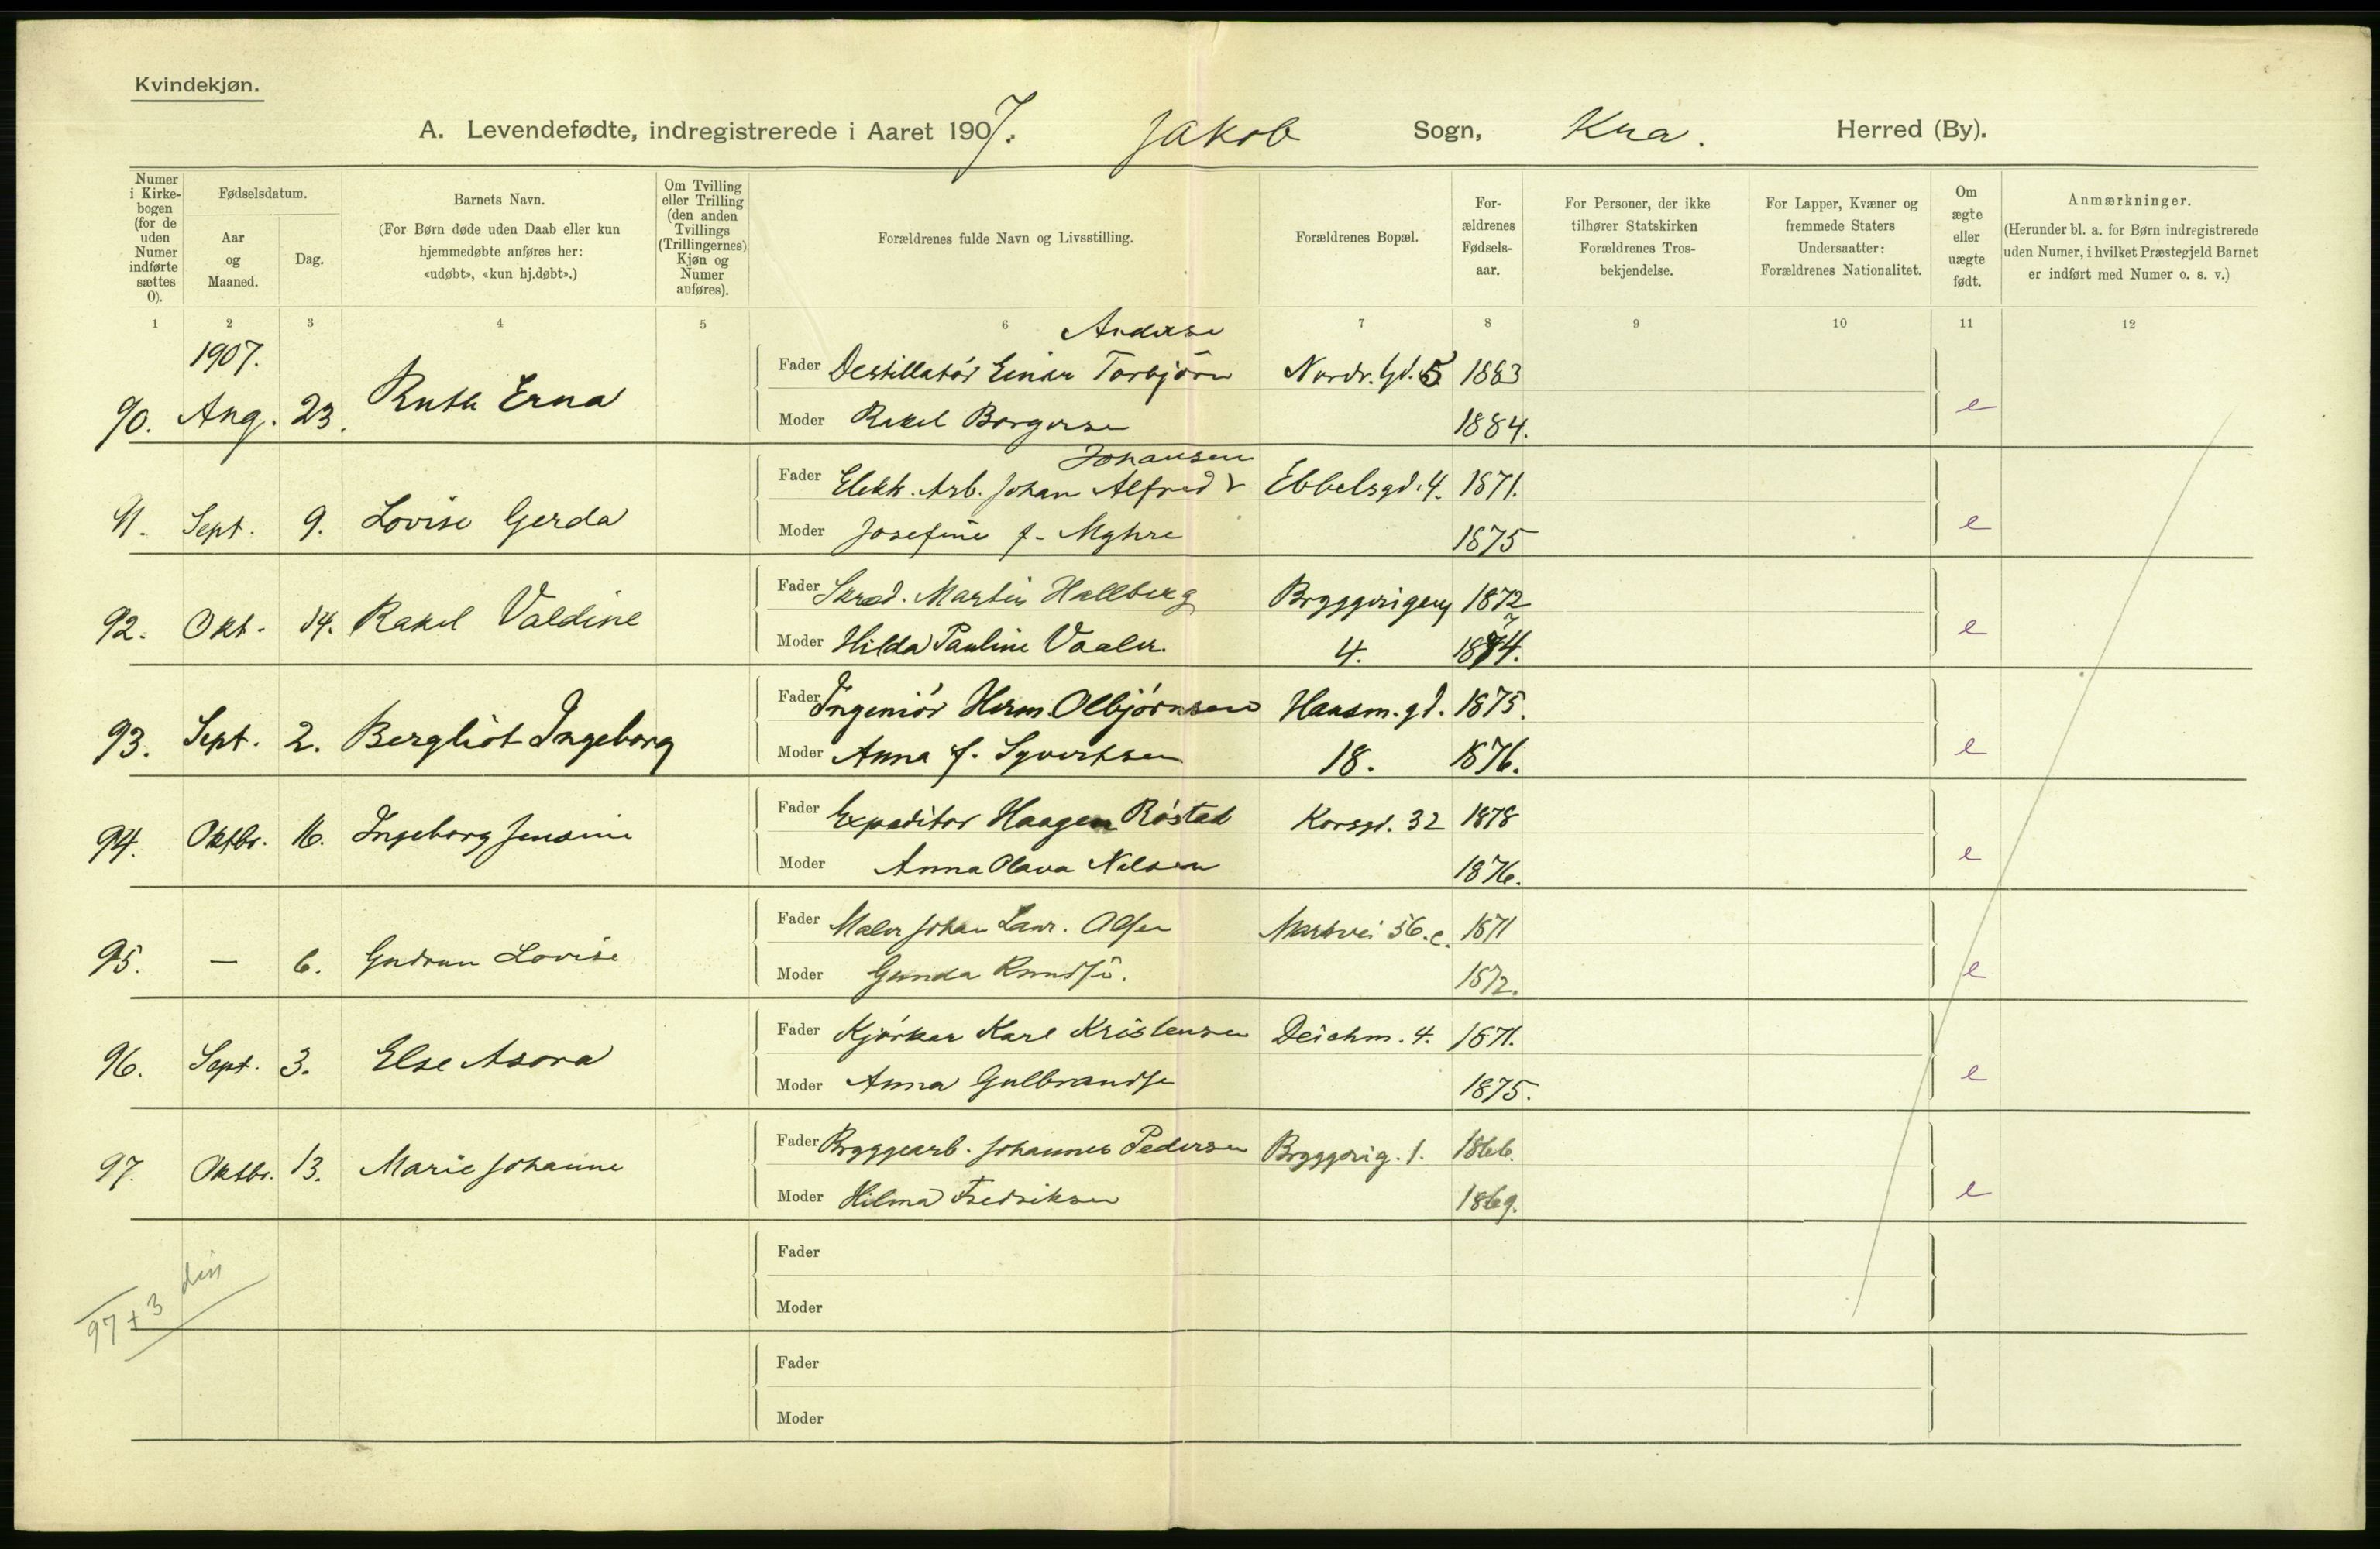 Kvindekjøn.
A. Levendefødte, indregistrerede i Aaret 1907. Jakob Sogn, Kra. Herred (By).
Numer i Kirke-bogen (for de uden Numer indførte sættes 0).
Fødselsdatum.
Aar og Maaned.
Dag.
Barnets Navn.
(For Børn døde uden Daab eller kun hjemmedøbte anføres her: «udøbt», «kun hj.døbt».)
Om Tvilling eller Trilling (den anden Tvillings (Trillingernes) Kjøn og Numer anføres).
Forældrenes fulde Navn og Livsstilling.
Forældrenes Bopæl.
For-ældrenes Fødsels-aar.
For Personer, der ikke tilhører Statskirken Forældrenes Tros-bekjendelse.
For Lapper, Kvæner og fremmede Staters Undersaatter: Forældrenes Nationalitet.
Om ægte eller uægte født.
Anmærkninger.
(Herunder bl. a. for Børn indregistrerede uden Numer, i hvilket Præstegjeld Barnet er indført med Numer o. s. v.)
1 2 3 4 5 6 7 8 9 10 11 12
1907.
Andersen
90. Aug. 23. Ruth Erna Fader Destillatør Einar Torbjørn Nordr. Gd. 5 1883
Moder Rakel Borgersen 1884. e
Johansen
91. Sept. 9. Lovise Gerda Fader Elektr. Arb. Johan Alfred Ebbelsgd. 4. 1871.
Moder Josefine f. Myhre 1875 e
92. Okt. 14. Rakel Valdine Fader Skræd. Martin Hallberg Bryggerigang 1872
Moder Hilda Pauline Vaaler. 4. 1874. e
93. Sept. 2. Bergliot Ingeborg Fader Ingeniør Herm. Olbjørnsen Hausm. gd. 1875.
Moder Anna f. Syvertsen 18. 1876. e
94. Oktbr. 16. Ingeborg Jensine Fader Expeditør Haagen Røstad Korsgd. 32 1878
Moder Anna Olava Nilsen 1876. e
95. — 6. Gudrun Lovise Fader Maler Johan Laur. Olsen Markvei 56.c. 1871
Moder Gunda Knudsd. 1872. e
96. Sept. 3. Else Asora Fader Kjørkar Karl Kristensen Deichm. 4. 1871.
Moder Anna Gulbrandsen 1875. e
97. Oktbr. 13. Marie Johanne Fader Bryggearb. Johannes Pedersen Bryggerig. 1. 1866.
Moder Hilma Fredriksen 1869. e
Fader
Moder
97 + 3
Fader
Moder